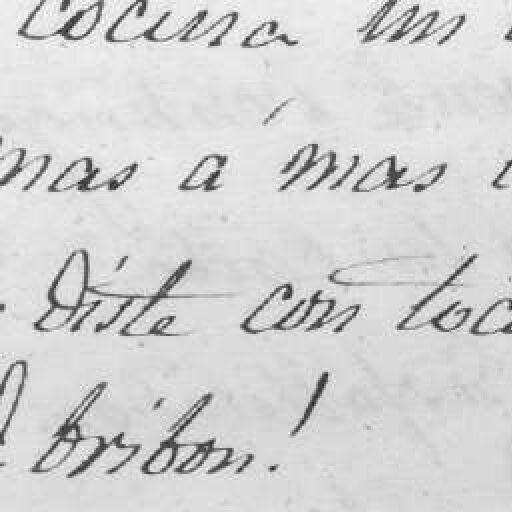 cocina un
mas á mas
diste con toca
bribon!